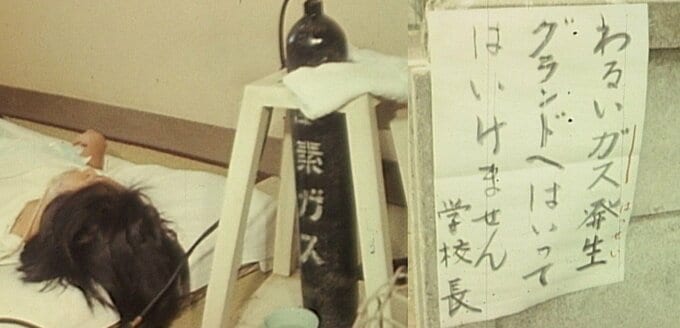 素ガス
わるいガス発生
はっせい
グランドへはいって
はいけません
学校長